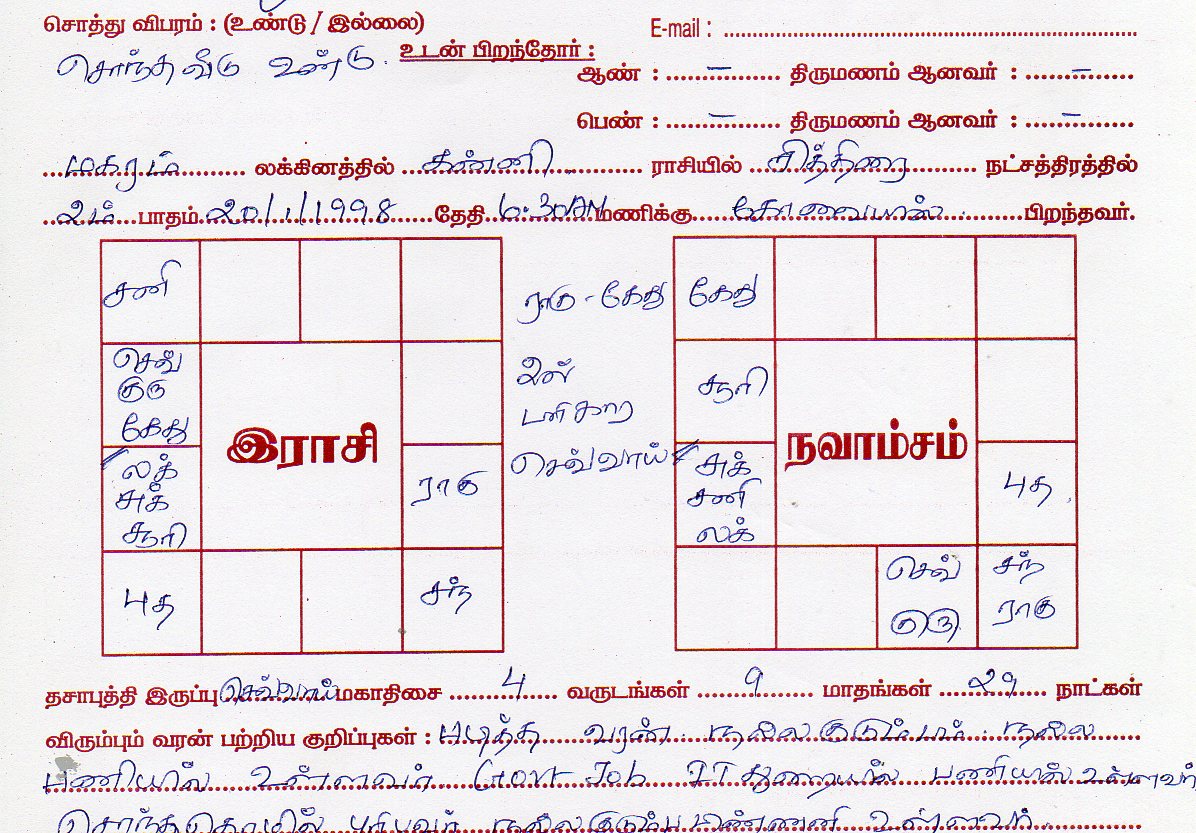 சொத்து விபரம் : (உண்டு / இல்லை) E-mail :
சொந்த வீடு உண்டு. உடன் பிறந்தோர் :
ஆண் : – திருமணம் ஆனவர் : –
பெண் : – திருமணம் ஆனவர் : –
மகரம் லக்கினத்தில் கன்னி ராசியில் சித்திரை நட்சத்திரத்தில்
2ம் பாதம் 20/1/1998 தேதி 6.30AM மணிக்கு கோவையில் பிறந்தவர்.
சனி
செவ்
குரு
கேது
லக்
சுக்
சூரி
இராசி
ராகு
புத
சந்
ராகு - கேது
உள்
செவ்வாய்
கேது
சூரி
சுக்
சனி
லக்
நவாம்சம்
புத
செவ்
குரு
சந்
ராகு
தசாபுத்தி இருப்பு செவ்வாய் மகாதிசை 4 வருடங்கள் 9 மாதங்கள் 29 நாட்கள்
விரும்பும் வரன் பற்றிய குறிப்புகள் : படித்த வரன் நல்ல குடும்பம் நல்ல
பணியில் உள்ளவர் Govt Job IT துறையில் பணியில் உள்ளவர்
சொந்த தொழில் புரிபவர் நல்ல குடும்ப பின்னணி உள்ளவர்.